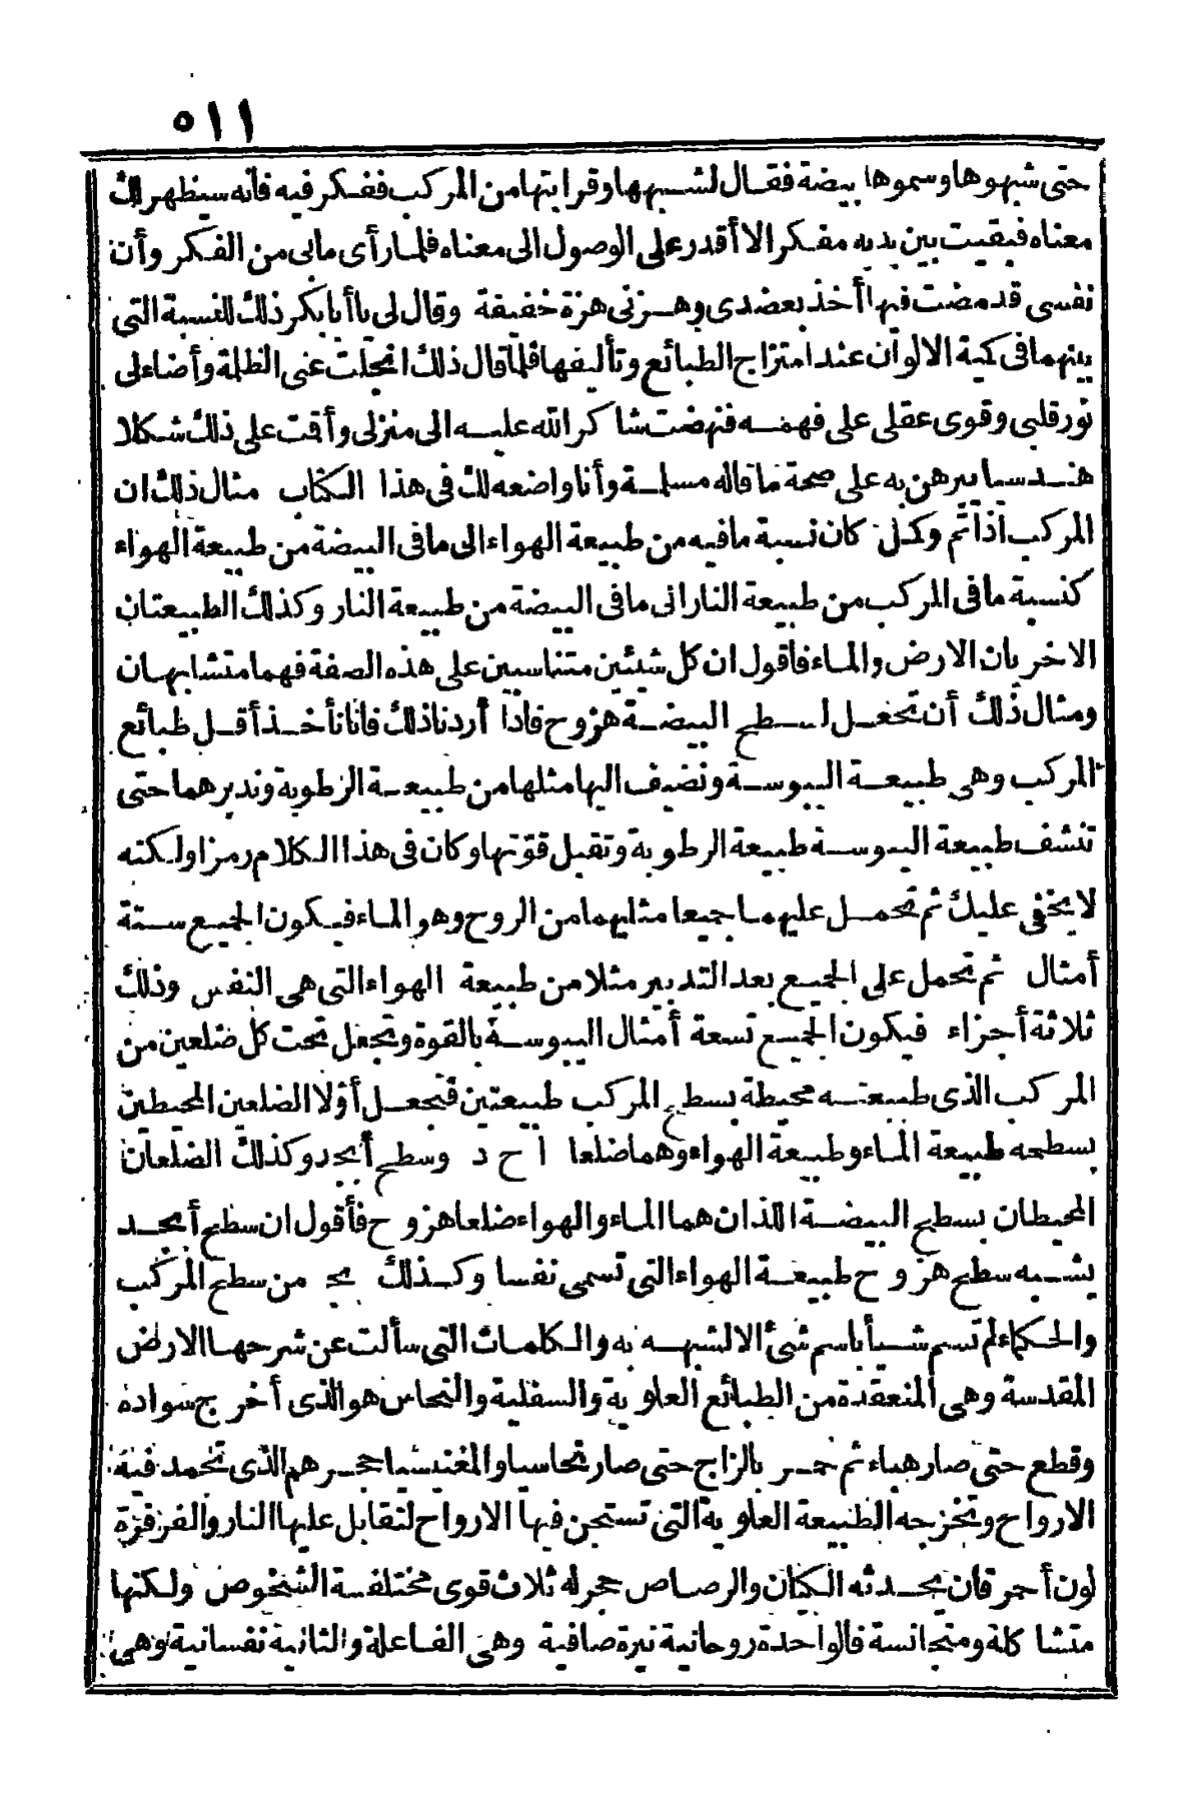 ٥١١
حتى شبهوها وسموها بيضة فقال لشبهها وقرابتها من المركب ففكر فيه فانه سيظهر لك
معناه فبقيت بين يديه مفكرا لا أقدر على الوصول الى معناه فلما رأى مابى من الفكر وأن
نفسى قد مضت فيها أخذ بعضدى وهزنى هزة خفيفة وقال لى يا أبا بكر ذلك للنسبة التى
بينهما فى كمية الالوان عند امتزاج الطبائع وتأليفها فلما قال ذلك انجلت عنى الظلمة وأضاء لى
نور قلبى وقوى عقلى على فهمه فنهضت شاكرا لله عليه الى منزلى وأقت على ذلك شكلا
هندسيا يبرهن به على صحة ما قاله مسلمة وأنا واضعه لك فى هذا الكتاب مثال ذلك ان
المركب اذا تم وكمل كان نسبة مافيه من طبيعة الهواء الى مافى البيضة من طبيعة الهواء
كنسبة مافى المركب من طبيعة النار الى مافى البيضة من طبيعة النار وكذلك الطبيعتان
الاخريان الارض والماء فاقول ان كل شيئين متناسبين على هذه الصفة فهما متشابهان
ومثال ذلك أن تجعل لسطح البيضة هزوح فاذا أردنا ذلك فانا نأخذ أقل طبائع
المركب وهى طبيعة اليبوسة ونضيف اليها مثلها من طبيعة الرطوبة وندبرهما حتى
تنشف طبيعة اليبوسة طبيعة الرطوبة وتقبل قوتها وكان فى هذا الكلام رمزا ولكنه
لا يخفى عليك ثم تحمل عليهما جميعا مثليهما من الروح وهو الماء فيكون الجميع ستة
أمثال ثم تحمل على الجميع بعد التدبير مثلا من طبيعة الهواء التى هى النفس وذلك
ثلاثة أجزاء فيكون الجميع تسعة أمثال اليبوسة بالقوة وتجعل تحت كل ضلعين من
المركب الذى طبيعته محيطة بسطح المركب طبيعتين فتجعل أولا الضلعين المحيطين
بسطحه طبيعة الماء وطبيعة الهواء وهما ضلعا ا ح د وسطح أبجد وكذلك الضلعان
المحيطان بسطح البيضة اللذان هما الماء والهواء ضلعا هزوح فأقول ان سطح أبجد
يشبه سطح هزوح طبيعة الهواء التى تسمى نفسا وكذلك بج من سطح المركب
والحكماء لم تسم شيأ باسم شئ الا لشبهه به والكلمات التى سألت عن شرحها الارض
المقدسة وهى المنعقدة من الطبائع العلوية والسفلية والنحاس هو الذى أخرج سواده
وقطع حتى صار هباء ثم حمر بالزاج حتى صار نحاسيا والمغنيسيا حجرهم الذى تجمد فيه
الارواح وتخرجه الطبيعة العلوية التى تستجن فيها الارواح لتقابل عليها النار والفرفرة
لون أحمر قان يحدثه الكيان والرصاص حجر له ثلاث قوى مختلفة الشخوص ولكنها
متشاكلة ومتجانسة فالواحدة روحانية نيرة صافية وهى الفاعلة والثانية نفسانية وهى